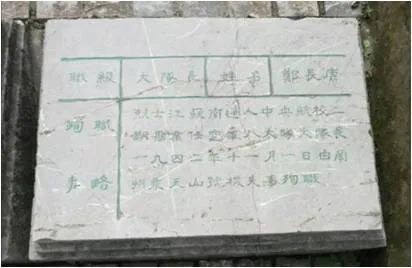 職級 大隊長 姓名 鄭長濂
殉職 烈士江蘇南通人中央航校
期畢業任空軍八大隊大隊長
一九四二年十一月一日由蘭
事略 州乘天山號機失事殉職